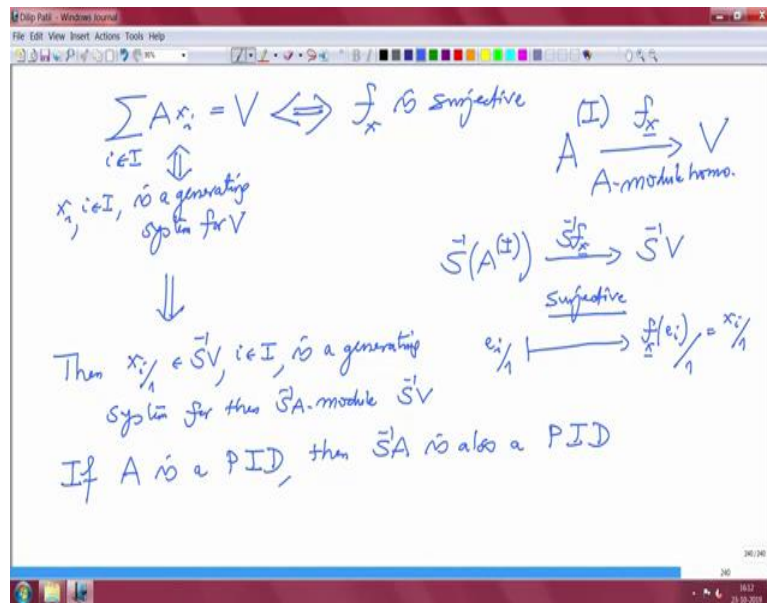 Dilip Patil - Windows Journal
File Edit View Insert Actions Tools Help
∑ A x_i = V ⟺ f_x is surjective
i∈I
A^(I) f_x → V
A-module homo.
⇕
x_i, i∈I, is a generating
system for V
S^{-1}(A^(I)) S^{-1}f_x → S^{-1}V
surjective
e_i/1 ↦ f_x(e_i)/1 = x_i/1
⇓
Then x_i/1 ∈ S^{-1}V, i∈I, is a generating
system for the S^{-1}A-module S^{-1}V
If A is a PID, then S^{-1}A is also a PID
240/240
240
16:12
23-10-2019